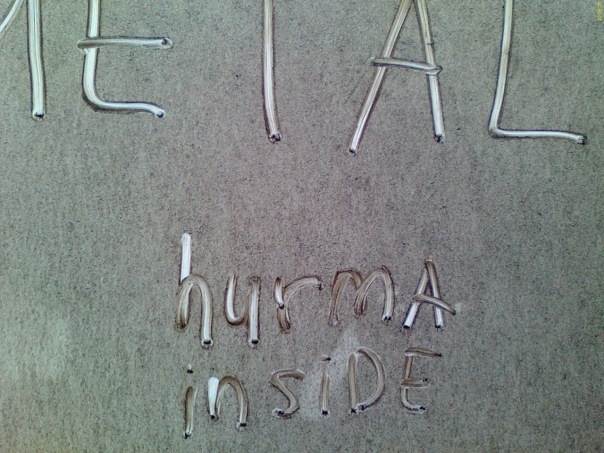 METAL
hurmA
inSiDE